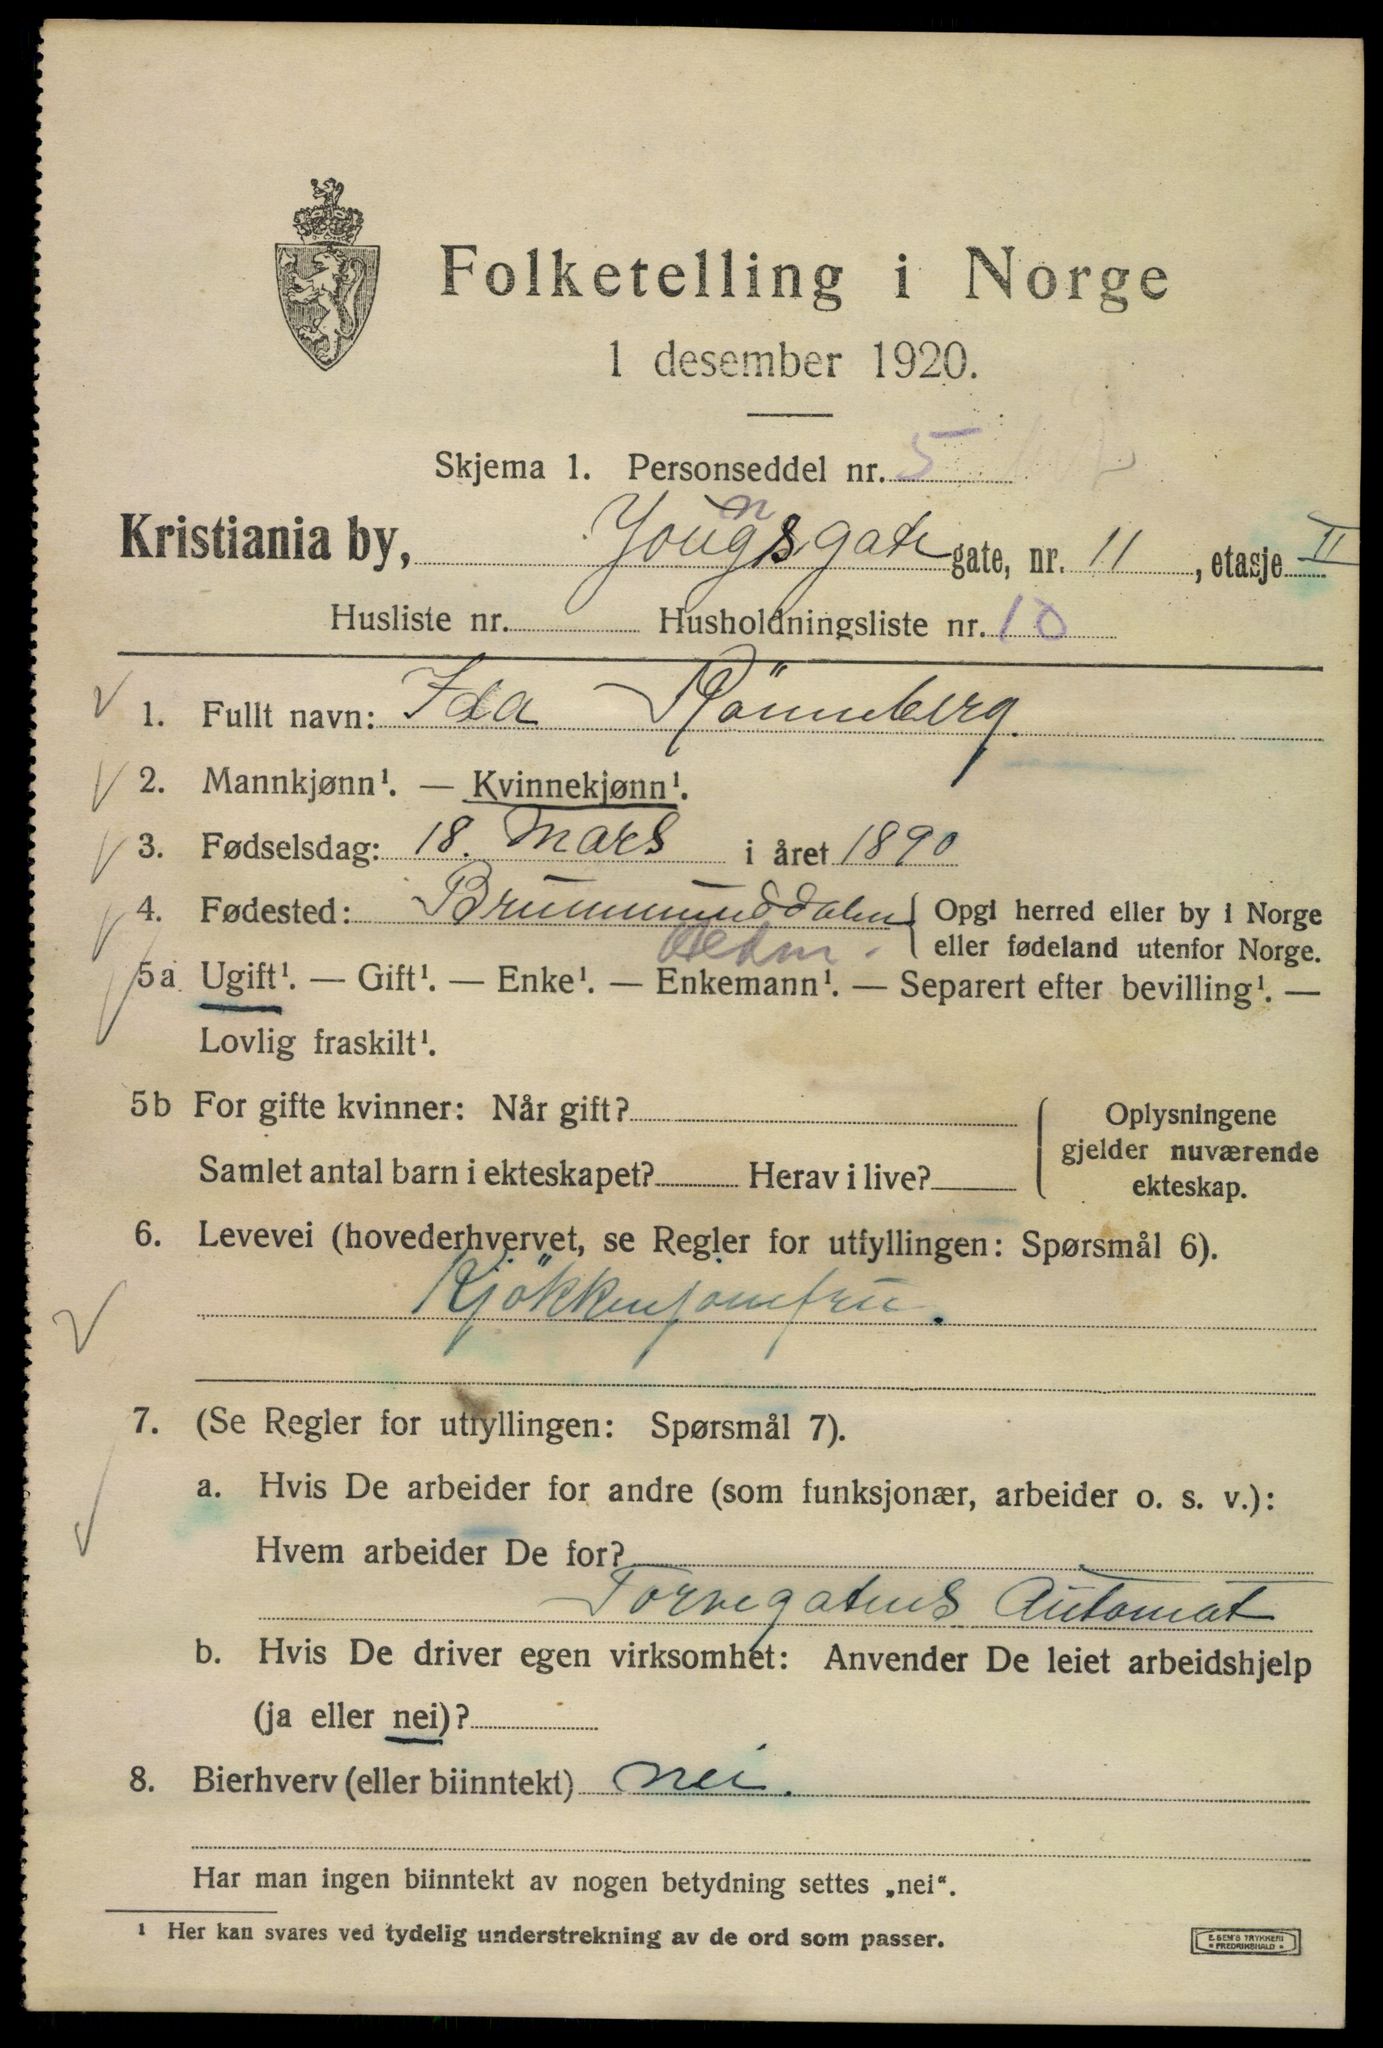 Folketelling i Norge
1 desember 1920.
Skjema 1. Personseddel nr. 5
Kristiania by, Youngsgate gate, nr. 11, etasje II
Husliste nr. Husholdningsliste nr. 10
1. Fullt navn: Ida Rönneberg.
2. Mannkjønn¹. — Kvinnekjønn¹.
3. Fødselsdag: 18. Mars i året 1890
4. Fødested: Brummunddalen { Opgi herred eller by i Norge
eller fødeland utenfor Norge.
Hedm.
5a Ugift¹. — Gift¹. — Enke¹. — Enkemann¹. — Separert efter bevilling¹. —
Lovlig fraskilt¹.
5b For gifte kvinner: Når gift?
Samlet antal barn i ekteskapet? Herav i live?
{ Oplysningene
gjelder nuværende
ekteskap.
6. Levevei (hovederhvervet, se Regler for utfyllingen: Spørsmål 6).
Kjökkenjomfru.
7. (Se Regler for utfyllingen: Spørsmål 7).
a. Hvis De arbeider for andre (som funksjonær, arbeider o. s. v.):
Hvem arbeider De for?
Torvegatens Automat
b. Hvis De driver egen virksomhet: Anvender De leiet arbeidshjelp
(ja eller nei)?
8. Bierhverv (eller biinntekt) nei.
Har man ingen biinntekt av nogen betydning settes „nei“.
¹ Her kan svares ved tydelig understrekning av de ord som passer.
E. SEM'S TRYKKERI
FREDRIKSHALD